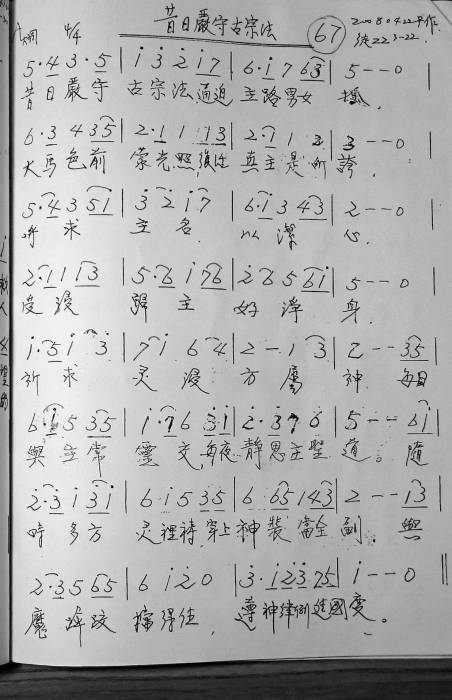 昔日嚴守古宗法
67
4/4
5·4 3·5 | 1 3 2 1 7 | 6·1 7 6 3 | 5 - - 0 |
昔日嚴守 古宗法逼迫 主路男女
6·3 4 3 5 | 2·1 1 1 3 | 2·7 1 2 | 3 - - 0
大馬色前 蒙光照 真主是所誇
5·4 3 5 1 | 3 2 1 7 | 6·1 3 4 3 | 2 - - 0
所求 主名 以潔心
2·1 1 1 3 | 5·6 1 7 6 | 2 6 5 6 1 | 5 - - 0 |
受浸 歸主 好淨身
1·5 1 3 | 7 1 6 4 | 2 - 1 3 | 2 - - 3 5 |
祈求 灵浸 方屬神 每日
6·1 5 3 5 | 1·7 6 3 1 | 2·3 7 6 | 5 - - 6 1 |
與主常 靈交每夜靜思主聖道。隨
2·3 1 3 1 | 6 1 5 3 5 | 6 6 5 1 4 3 | 2 - - 1 3 |
時多方 灵裡禱穿上神裝當全副 與
2·3 5 6 5 | 6 1 2 0 | 3·1 2 3 7 5 | 1 - - 0 ‖
魔 得往 遵神律例進國度。